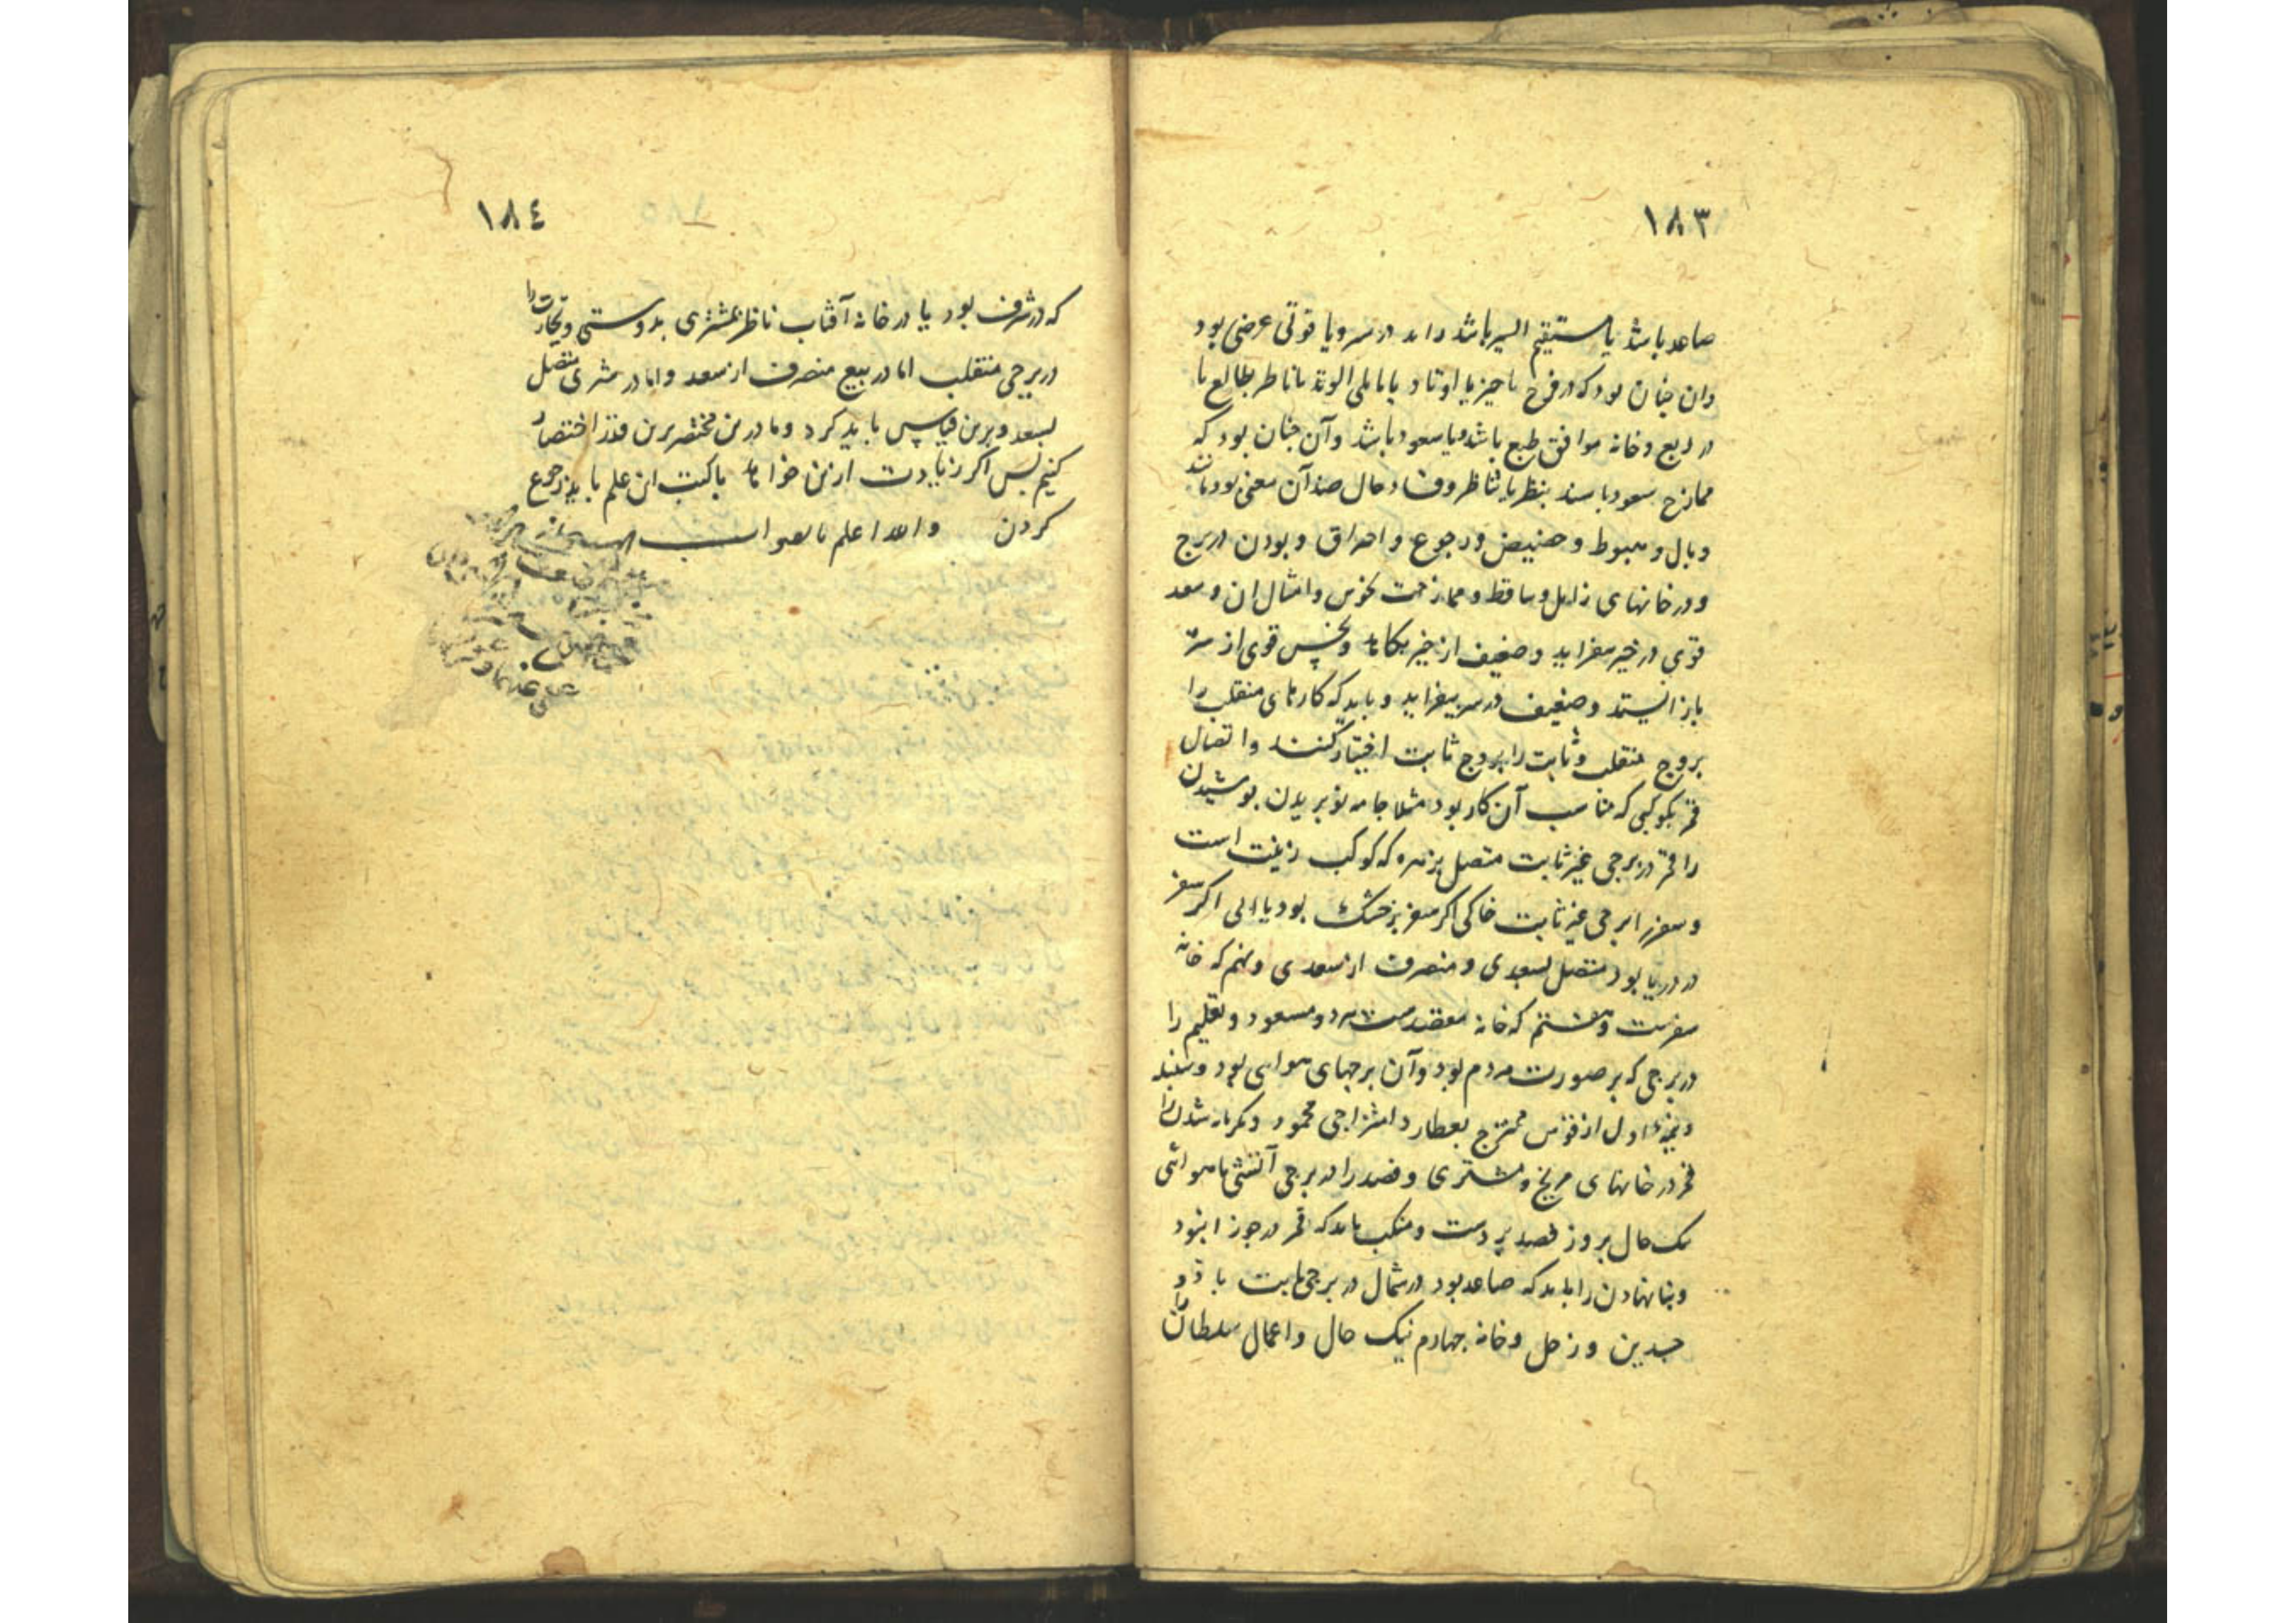 ۱۸۳
صاعد باشد یا مستقیم السیر باشد در سیر و یا قوتی عرضی بود
وان چنان بود که در فرح یا حیز یا اوتاد یا مایلی الوتد یا ناظر بطالع یا
در ربع و خانه موافق طبع باشد و یا سعود باشد وآن چنان بود که
ممازج سعود باشند بنظر یا تناظر و فساد حال ضد آن معنی بود مانند
وبال و هبوط و حضیض و رجوع و احتراق و بودن در برج
و در خانهای زایل و ساقط و ممازجت نحوس و امثال ان و سعد
قوی در خیر بیفزاید و ضعیف از خیر بکاهد و نحس قوی از شر
باز ایستد و ضعیف در شر بیفزاید و باید که کارهای منقلب را
بروج منقلب و ثابت را بروج ثابت اختیار کنند و اتصال
قمر بکوکبی که مناسب آن کار بود مثلا جامه نو بریدن پوشیدن
را قمر در برجی غیر ثابت متصل بزهره که کوکب زینت است
و سفر را برجی غیر ثابت خاکی اگر سفر بر خشک بود یا ابی اگر سفر
در دریا بود متصل بسعدی و منصرف از سعدی و نهم که خانه
سفرست و هشتم که خانه مقصدست هر دو مسعود و تعلیم را
در برجی که بر صورت مردم بود وآن برجهای هوایی بود و سنبله
و نیمه اول از قوس ممتزج بعطارد امتزاجی محمود و گرمابه شدن را
قمر در خانهای مریخ و مشتری و فصد را در برجی آتشی یا هوائی
نیک حال بروز فصد بر دست و منکب باید که قمر در جوزا نبود
و بنا نهادن را باید که صاعد بود در شمال در برجی ثابت یا ذو
جسدین و زحل و خانه چهارم نیک حال و اعمال سلطان را
۱۸٤
که در شرف بود یا در خانه آفتاب ناظر بمشتری بدوستی و تجارت را
در برجی منقلب اما در بیع منصرف از سعد و اما در شری متصل
بسعد و برین قیاس باید کرد و ما درین مختصر برین قدر اختصار
کنیم پس اگر زیادت ازین خواهد با کتب این علم باید رجوع
کردن والله اعلم بالصواب